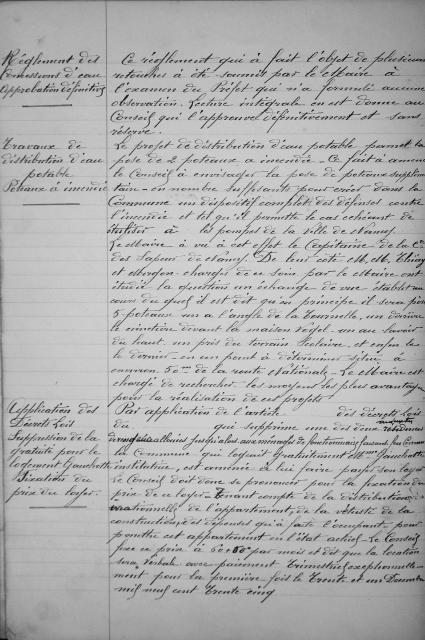 Réglement des
Concessions d'eau
Approbation définitive
Ce réglement qui à fait l'objet de plusieurs
retouches à été soumis par le Maire à
l'examen du Préfet qui n'a formulé aucune
observation. Lecture intégrale en est donnée au
Conseil qui l'approuve définitivement et sans
réserve.
Travaux de
distribution d'eau
potable
Poteaux à incendie
Le projet de distribution d'eau potable permet la
pose de 2 poteaux a incendie - Ce fait à amené
le Conseil à envisager la pose de poteaux supplémen
taire - en nombre suffisants pour créer dans la
Commune un dispositif complet des défenses contre
l'incendie et tel qu'il permette le cas échéant
utiliser à les pompes de la ville de Nancy
Le Maire à vu à cet effet le Capitaine de la Cie
des Sapeur de Nancy. De leur côté M. M. Thiry
et chargés de ce soin par le Maire ont
étudié la question un échange de vue établit au
cours du quel il est dit qu'en principe il sera posé
5 poteaux un a l'angle de la Tournelle, un derrière
le cimetière devant la maison Vogel - un au lavoir
du haut, un près du terrain Scolaire et enfin le
le dernier en un point à déterminer situé à
environ 50m de la route Nationale - Le Maire est
chargé de rechercher les moyens les plus avantageux
pour la réalisation de ces projets
Application des
Décrets Lois
Suppression de la
gratuité pour le
logement Gauchotte
Fixation du
prix du loyer.
Par application de l'article des décrets Lois
du qui supprime une des deux
allouées jusqu'alors aux ménages de fonctionnaires
la Commune qui logeait gratuitement Mme Gauchotte
institutrice, est amenée à lui faire payer son loyer
Le Conseil doit donc se prononcer pour la fixation du
prix de ce loyer - Tenant compte de la distribution
irrationnelle de l'appartement, de la vétusté de la
construction, des dépenses qu'à faite l'occupant pour
cet appartement en l'état actuel - Le Conseil
fixe ce prix à par mois et dit que la location
sera verbale avec paiement Trimestriel exceptionnelle-
ment pour la première fois le Trente et un Décembre
mil neuf cent Trente cinq